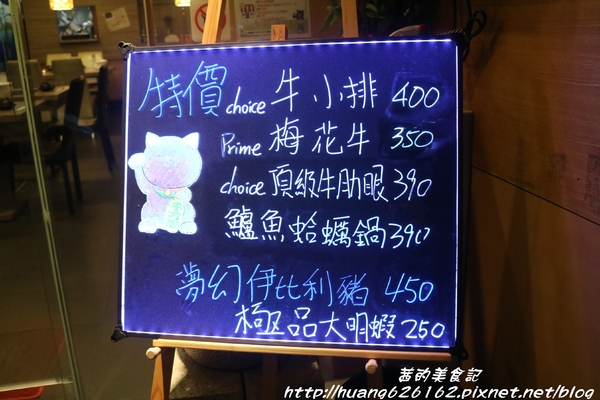 特價 choice 牛小排 400
Prime 梅花牛 350
choice 頂級牛肋眼 390
鱸魚蛤蠣鍋 390
夢幻伊比利豬 450
極品大明蝦 250
茜的美食記
http://huang626162.pixnet.net/blog